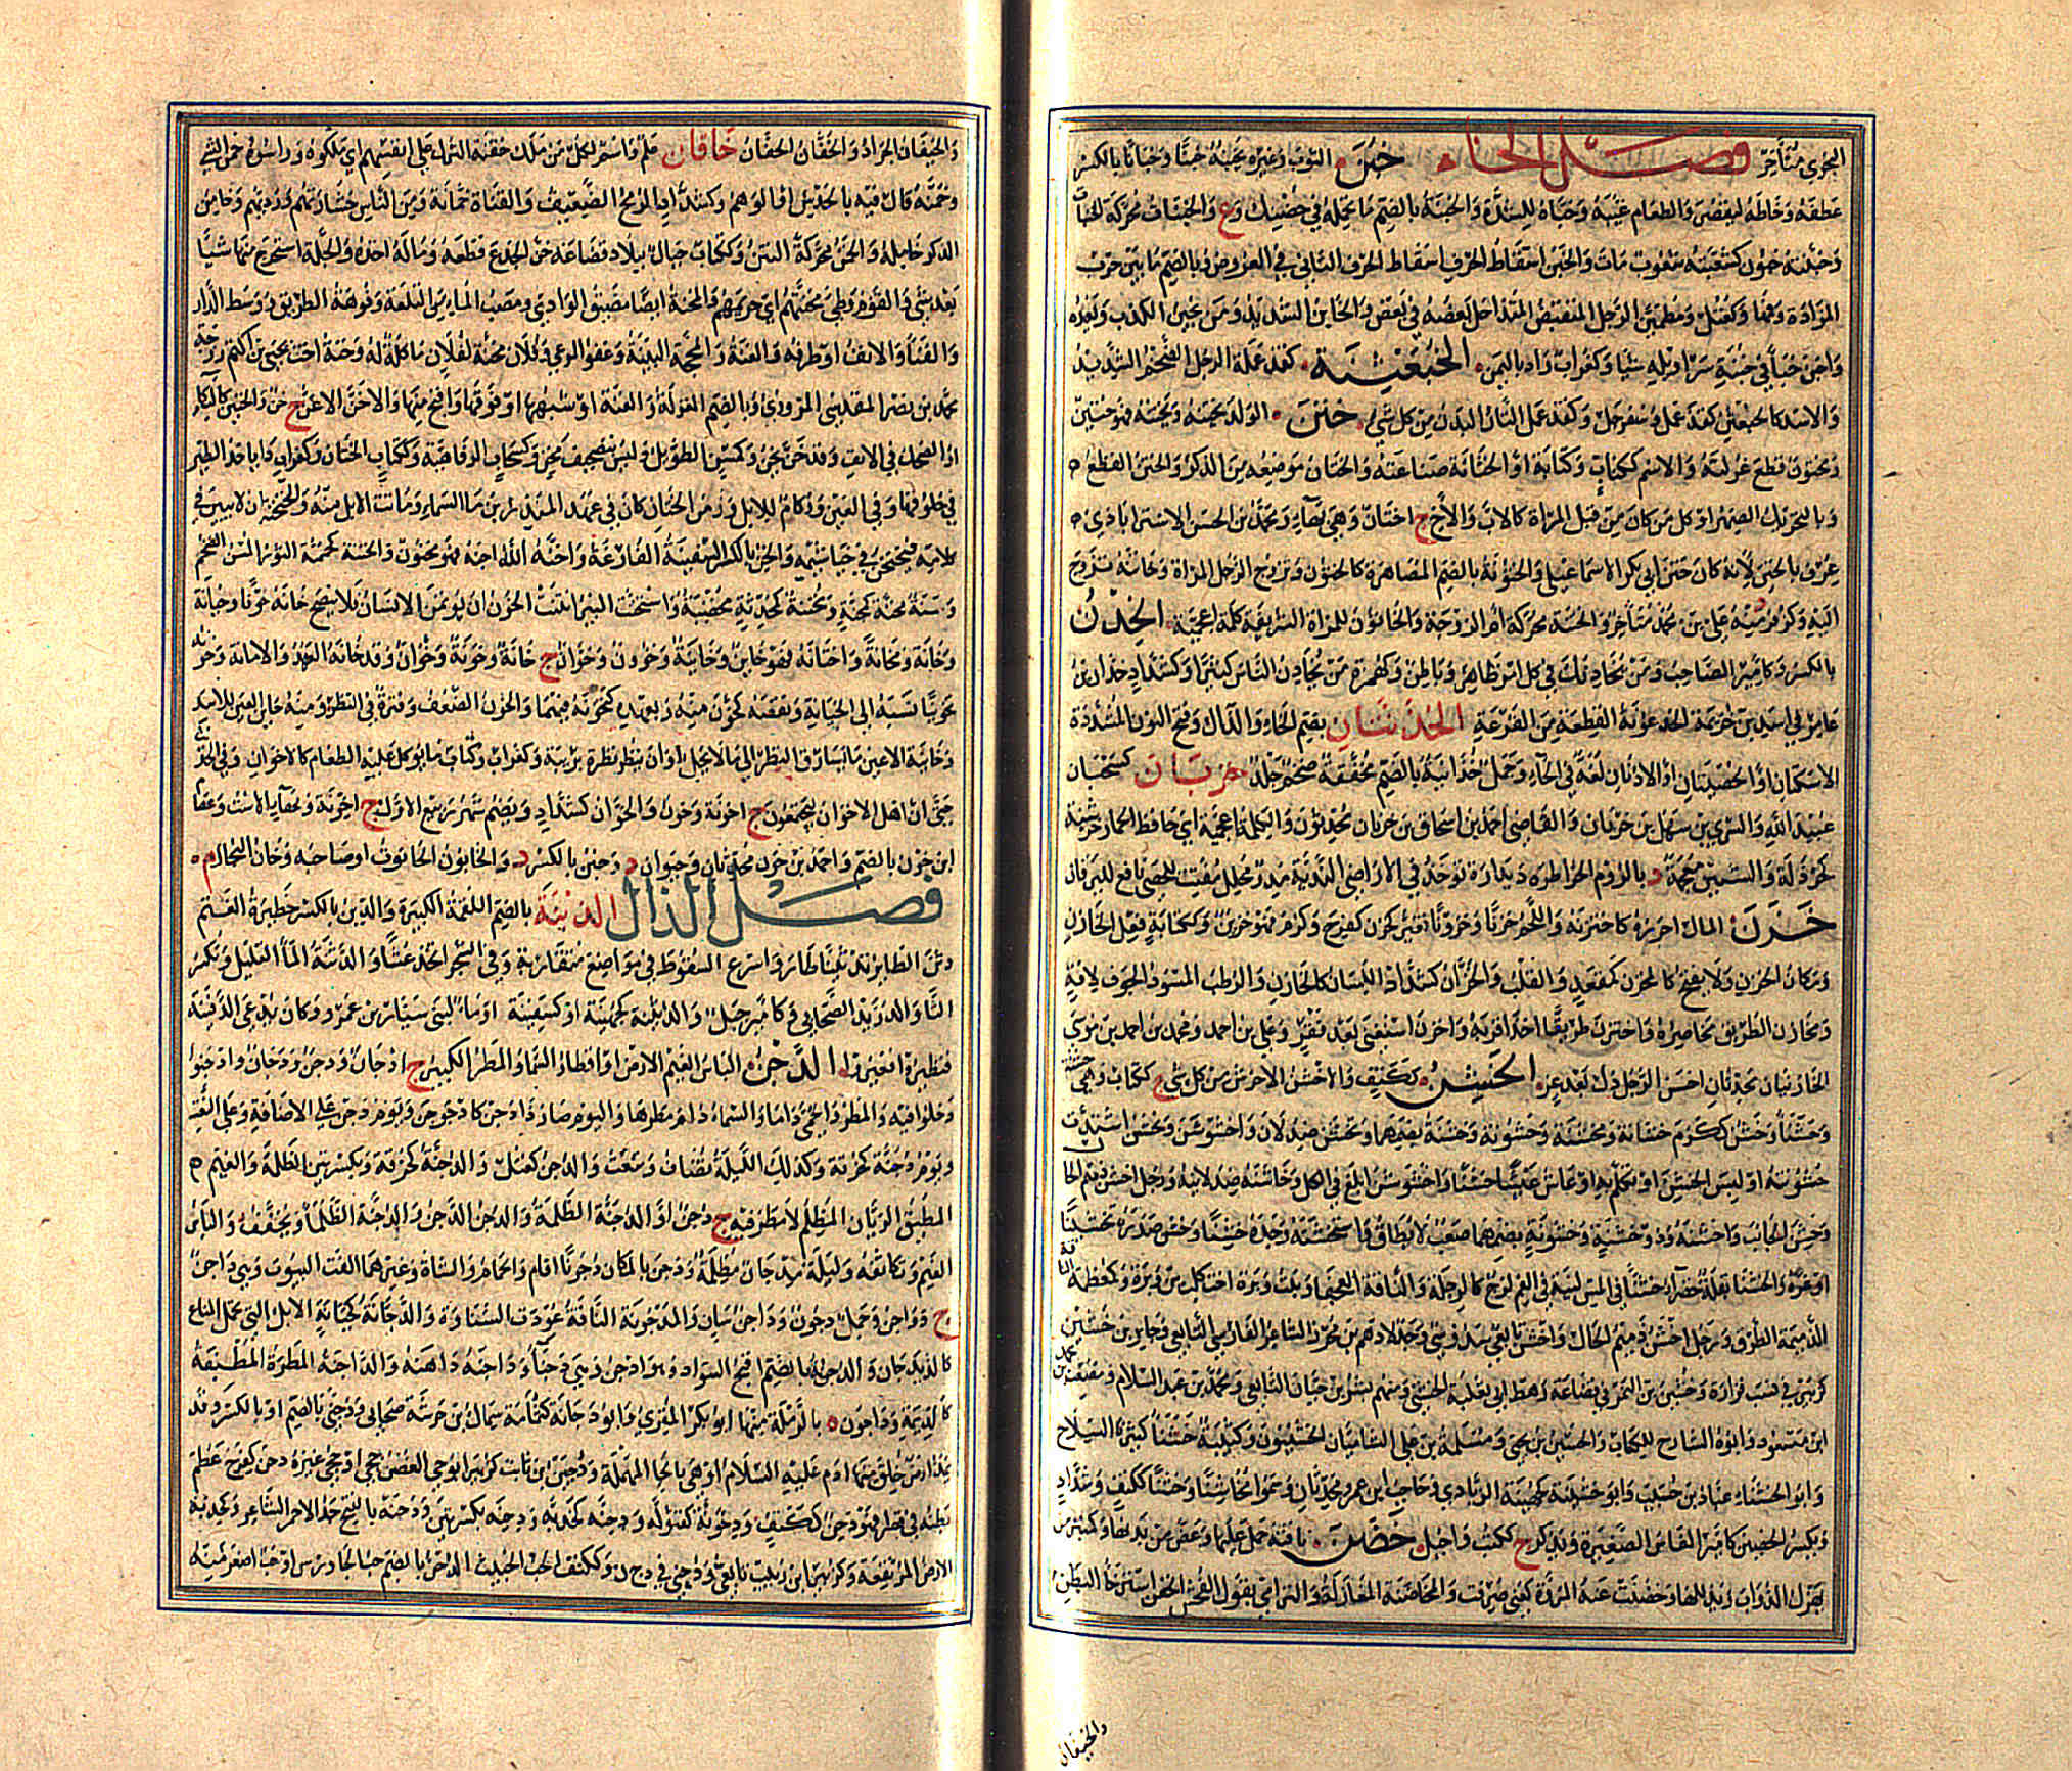 المجوي متأخر فصل الخاء خبن الثوب وغيره يخبنه خبنا وخبانا بالكسر
عطفه وخاطه ليقصر والطعام غيبه وخبأه للشدة والخبنة بالضم ما تحمله في حضنك وع والخبنات محركة الخنات
وخبنته خبون كشعبته شعوب مات والخبن اسقاط الحرف اسقاط الحرف الثاني في العروض وبالضم ما بين خرب
المزادة وفمها وكعتل ومطمئن الرجل المنقبض المتداخل بعضه في بعض والخابن الشديد ومن يخبن الكذب ويعده
واخبن خبأ في خبنة سراويله شيا وكغراب واد باليمن الخبعثنة كقذعملة الرجل الضخم الشديد
والاسد كالخبعثن كقذعمل وسفرجل وكقذعمل التار البدن من كل شي ختن الولد يختنه ويختنه فهو ختين
ومختون قطع غرلته والاسم ككتاب وكتابة او الختانة صناعته والختان موضعه من الذكر والختن القطع
وبالتحريك الصهر او كل من كان من قبل المراة كالاب والاخ ج اختان وهي بهاء ومحمد بن الحسن الاستراباذي
عرف بالختن لانه كان ختن ابي بكر الاسماعيلي والختونة بالضم المصاهرة كالختون وتزوج الرجل المراة وخاتنه تزوج
اليه وكزفر منه علي بن محمد متأخر والختنة محركة ام الزوجة والخاتون للمراة الشريفة كلمة اعجمية الخدن
بالكسر وكامير الصاحب ومن يخادنك في كل امر ظاهر وباطن وكهمزة من يخادن الناس كثيرا وكشداد خدان بن
عامر في اسد بن خزيمة الخذعونة القطعة من القرعة الخذنتان بضم الخاء والذال وفتح النون المشددة
الاسكتان او الخصيتان او الاذنان لغة في الحاء وجمل خذانية بالضم مخففة ضخم جلد خربان كسحبان
عبيد الله والسري بن سهل بن خربان والقاضي احمد بن اسحاق بن خربان محدثون والكلمة اعجمية اي حافظ الحمار خرشنة
كخردلة والشين معجمة د بالروم الخراطره ديدان توجد في الاراضي الندية مدر محلل مفتت للحصى نافع لليرقان
خزن المال احرزه كاختزنه واللحم خزنا وخزونا تغير كخزن كفرح وكرم فهو خزين وككتابة فعل الخازن
ومكان الخزن ولا يفتح كالمخزن كمقعد والقلب والخزان كشداد اللسان كالخازن والرطب المسود الجوف لآفة
ومخازن الطريق مخاصره واختزن طريقا اخذ اقربه واخزن استغنى بعد فقر وعلي بن احمد ومحمد بن احمد بن موسى
الخازنيان محدثان اخسن الرجل ذل بعد عز الخشن ككتف والاخشن الاحرش من كل شي ج ككتاب وهي خشنة
وخشنا وخشن ككرم خشانة ومخشنة وخشونة وخشنة بضمهما وتخشن ضد لان واخشوشن وتخشن اشتدت
خشونته او لبس الخشن او تكلم به او عاش عيشا خشنا واخشوشن ابلغ في الكل وخاشنه ضد لاينه ورجل اخشن
وخشن الجانب واخشنه وذو خشنة وخشونة بضمهما صعب لا يطاق واستخشنه وجده خشنا وخشن صدره تخشينا
اوغره والخشنا بقلة خضراء خشنا في المس لينة في الفم لزج كالرجلة والناقة العجفا وبنت وبرة اخت كلب بن وبرة وكمعظمة الناقة
الذميمة الطرق ورجل اخشن ذميم الحال واخشن تابعي سدوسي وجد لادهم بن محرز الشاعر الفارس التابعي وجابر بن خشين
كزبير في نسب فزارة وخشين بن النمر في قضاعة رهط ابي ثعلبة الخشني ومنهم بشر بن حيان التابعي ومحمد بن عبد السلام ومحمد
ابن مسعود وابوه الشارح للكتاب والحسين بن يحيى ومسلمة بن علي الشاميان الخشنيون وكتيبة خشنا كثيرة السلاح
وابو الخشناء عباد بن حسيب وابو خشينة كجهينة الزيادي وحاجب ابن عمر محدثان وسموا مخاشنا وخشنا ككتف وشداد
وبكسر الخصين كامير الفاس الصغيرة ويذكر ج ككتب واجبل خضن ناقته حمل عليها وعض من بدنها وكمنبر من
يهزل الدواب ويذللها وخضنت عنه المروة كعني صرفت والمخاضنة المغازلة والترامي بقول الفحش الخفن استرخا البطن
والخيفان
والخيفان الجراد والخفان الخفان خاقان علم واسم لكل من ملك خقنه الترك على انفسهم اي ملكوه ورأسوه خمن الشي
وخمنه قال فيه بالحدس او الوهم وكشداد الرمح الضعيف والقناة خمانة ومن الناس خشارتهم ورديهم وخامن
الذكر خامله والخمن محركة النتن وككتاب جبال ببلاد قضاعة خن الجذع قطعه وماله اخذه والجلة استخرج منها شيا
بعد شي والقوم وطي مخنتهم اي حريمهم والمخنة ايضا مضيق الوادي ومصب الماء من التلعة وفوهة الطريق ووسط الدار
والفناء والانف او طرفه والغنة والحجة البينة وعفو المرعى وفلان مخنة لفلان ماكلة له وخنة اخت يحيى بن اكثم زوجة
محمد بن نصر المقدسي المروزي وبالضم الغرلة والغنة او شبهها او فوقها واقبح منها والاخن الاغن ج خن والخنين كالبكا
او الضحك في الانف وقد خن يخن وكمسن الطويل وليس بتصحيف مخن وكسحاب الرفاهية وككتاب الختان وكغراب داء ياخذ الطير
في حلوقها وفي العين وزكام للابل وزمن الخنان كان في عهد المنذر بن ماء السماء وماتت الابل منه والخنخنة ان لا يبين في
كلامه فيخنخن في خياشيمه والخن بالكسر السفينة الفارغة واخنه الله اجنه فهو مخنون والخنة كخمة الثور المسن الضخم
وسنة مخنة كمجنة ومخنة كمحدثة مخصبة واستخنت البئر انتنت الخون ان يؤتمن الانسان فلا ينصح خانه خونا وخيانة
وخانة ومخانة واختانه فهو خائن وخائنة وخؤون وخوان ج خانة وخونة وخوان وقد خانه العهد والامانة وخونه
تخوينا نسبه الى الخيانة ونقصه كخون منه وتعهده كتخونه فيهما والخون الضعف وفترة في النظر ومنه خائن العين للاسد
وخائنة الاعين ما يسارق النظر الى ما لا يحل او ان ينظر نظرة بريبة وكغراب وكتاب ما يؤكل عليه الطعام كالاخوان وفي الحديث
حتى ان اهل الاخوان ليجتمعون ج اخونة وخون والخوان كشداد ويضم شهر ربيع الاول ج اخونة وخفايا الاست وعفا
ابن خون بالضم واحمد بن خون محدثان وخيوان د وخين بالكسر د والخابون الحانوت او صاحبه وخان التجار م
فصل الذال الدبنة بالضم اللقمة الكبيرة والدبن بالكسر حظيرة الغنم
دثن الطائر تدثينا طار واسرع السقوط في مواضع متقاربة وفي الشجر اتخذ عشا والدثنة الماء القليل وبكسر
الثا والد زيد الصحابي وكامير جبل والدثينة كجهينة او كسفينة او ماء لبني سيار بن عمرو وكان يدعى الدفينة
فتطيروا فغيروا الدجن الباس الغيم الارض واقطار السماء والمطر الكثير ج ادجان ودجن ودجون ودجان وادجنوا
دخلوا فيه والمطر والحمى داما والسماء دام مطرها واليوم صار ذا دجن كادجوجن ويوم دجن على الاضافة وعلى النعت
ويوم دجنة كحزقة وكذلك الليلة تضاف وتنعت والدجن كعتل والدجنة كحزقة وبكسرتين الظلمة والغيم
المطبق الريان المظلم لا مطر فيه ج دجن او الدجنة الظلمة والدجن الدجن والدجنة الظلماء ويخفف والباس
الغيم وتكاثفه وليلة مدجان مظلمة ودجن بالمكان دجونا اقام والحمام والشاة وغيرهما الفت البيوت وهي داجن
ج دواجن وجمل دجون وداجن سان والمدجونة الناقة عودت السناوة والدجانة كجبانة الابل التي تحمل المتاع
كالديدجان والدجنة بالضم اقبح السواد وهو ادجن وهي دجناء وداجنه داهنه والداجنة المطرة المطبقة
كالديمة وداجون ه بالرملة منها ابو بكر المقري وابو دجانة كثمامة سماك بن خرشة صحابي ودجنى بالضم او بالكسر وقد
يمد ارض خلق منها ادم عليه السلام او هي بالحاء المهملة ودجين بن ثابت كزبير ابو جي الغصن جحى او جحى غيره دحن كفرح عظم
بطنه في قصر فهو دحن ككتف ودحونة كفنولة ودحنة كخدبة ودحنة بكسرتين ودحنة بالفتح جد الاحمر الشاعر وكجدبة
الارض المرتفعة وكزبير ابن زبيب تابعي ودحني في دج ن وككتف الخب الخبيث الدخن بالضم حب الجاورس او حب اصغر منه